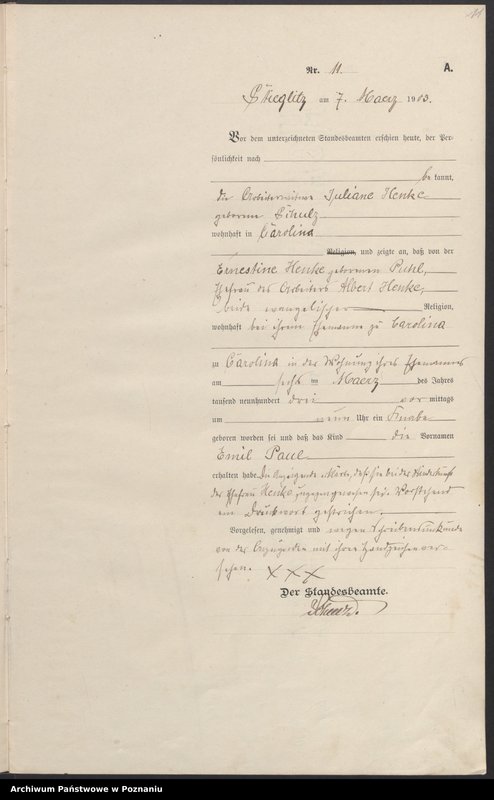 11
Nr. 11. A.
Stieglitz am 7. Maerz 1903.
Vor dem unterzeichneten Standesbeamten erschien heute, der Per-
sönlichkeit nach
be kannt,
die Arbeiterwitwe Juliane Henke
geborene Schulz
wohnhaft in Carolina
Religion, und zeigte an, daß von der
Ernestine Henke geborenen Puhl,
Ehefrau des Arbeiters Albert Henke,
beide evangelischer Religion,
wohnhaft bei ihrem Ehemanne zu Carolina
zu Carolina in der Wohnung ihres Ehemannes
am sechs ten Maerz des Jahres
tausend neunhundert drei vor mittags
um neun Uhr ein Knabe
geboren worden sei und daß das Kind die Vornamen
Emil Paul
erhalten habe. Die Anzeigende erklärte, daß sie bei der Niederkunft
der Ehefrau Henke zugegen gewesen sei. Vorstehend
ein Druckwort gestrichen.
Vorgelesen, genehmigt und wegen Schreibensunkunde
von der Anzeigenden mit ihren Handzeichen ver-
sehen. XXX
Der Standesbeamte.
Archiwum Państwowe w Poznaniu